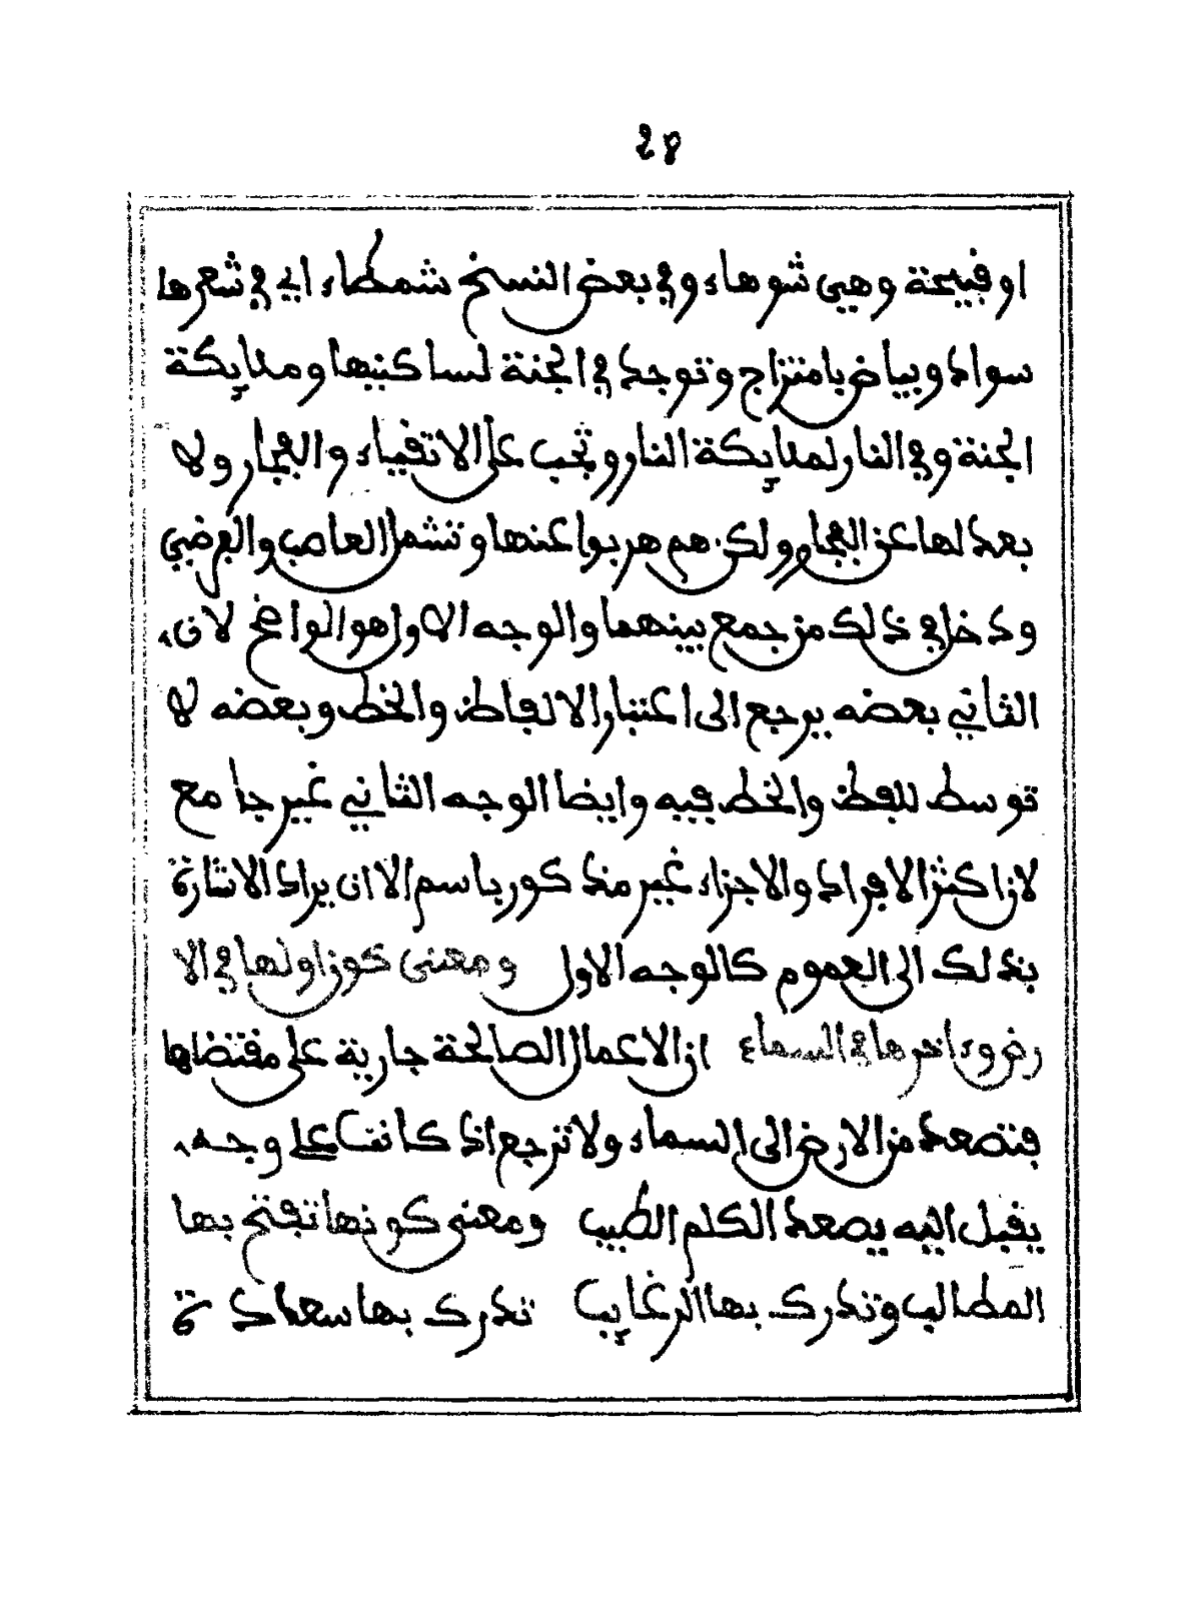 28
او قبيحة وهيي شوهاء وفي بعض النسخ شمطاء ايي في شعرها
سواد وبياض بامتزاج وتوجد في الجنة لساكنيها وملايكة
الجنة وفي النار لملايكة النار وتجب على الاتقياء والفجار ولا
بعد لها عن الفجار ولكن هم هربوا عنها وتشمل العاصب والفرضي
ودخل في ذلك من جمع بينهما والوجه الاول هو الواضح لان
الثاني بعضه يرجع الى اعتبار الالفاظ والخط وبعضه لا
توسط للفظ والخط فيه وايضا الوجه الثاني غير جامع
لان اكثر الافراد والاجزاء غير مذكور باسم الا ان يراد الاشارة
بذلك الى العموم كالوجه الاول ومعنى كون اولها في الا
رض وءاخرها في السماء ان الاعمال الصالحة جارية على مقتضاها
فتصعد من الارض الى السماء ولا ترجع اذا كانت على وجه
يقبل اليه يصعد الكلم الطيب ومعنى كونها تفتح بها
المطالب وتدرك بها الرغايب تدرك بها سعادة